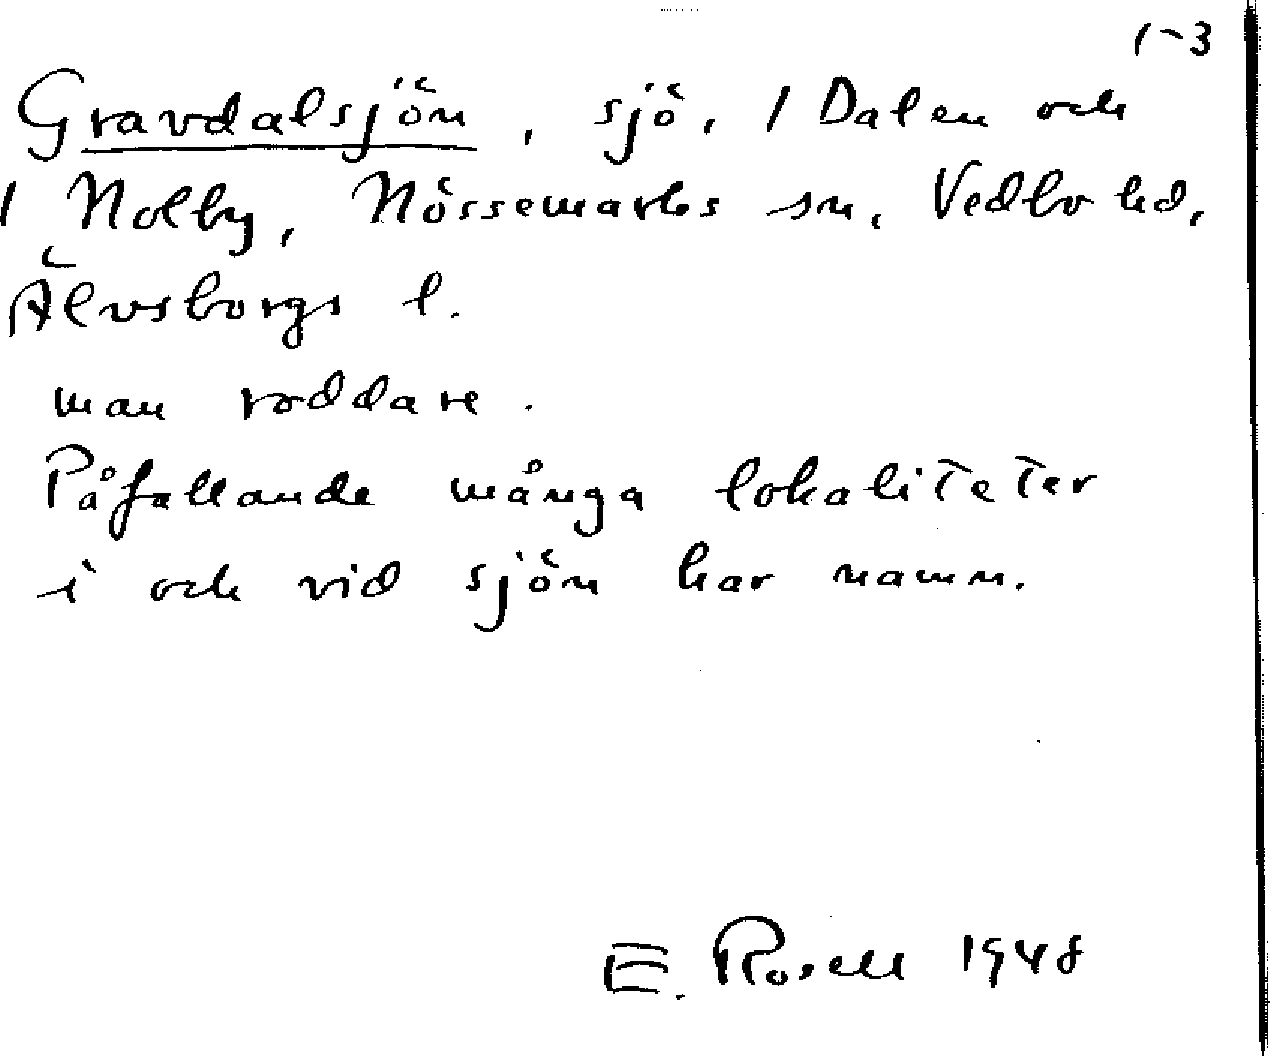 1-3
Gravdalsjön, sjö, 1 Dalen och
1 Nolby, Nössemarks sn, Vedbo hd,
Älvsborgs l.
man roddare.
Påfallande många lokaliteter
i och vid sjön har namn.
E. Rosell 1948